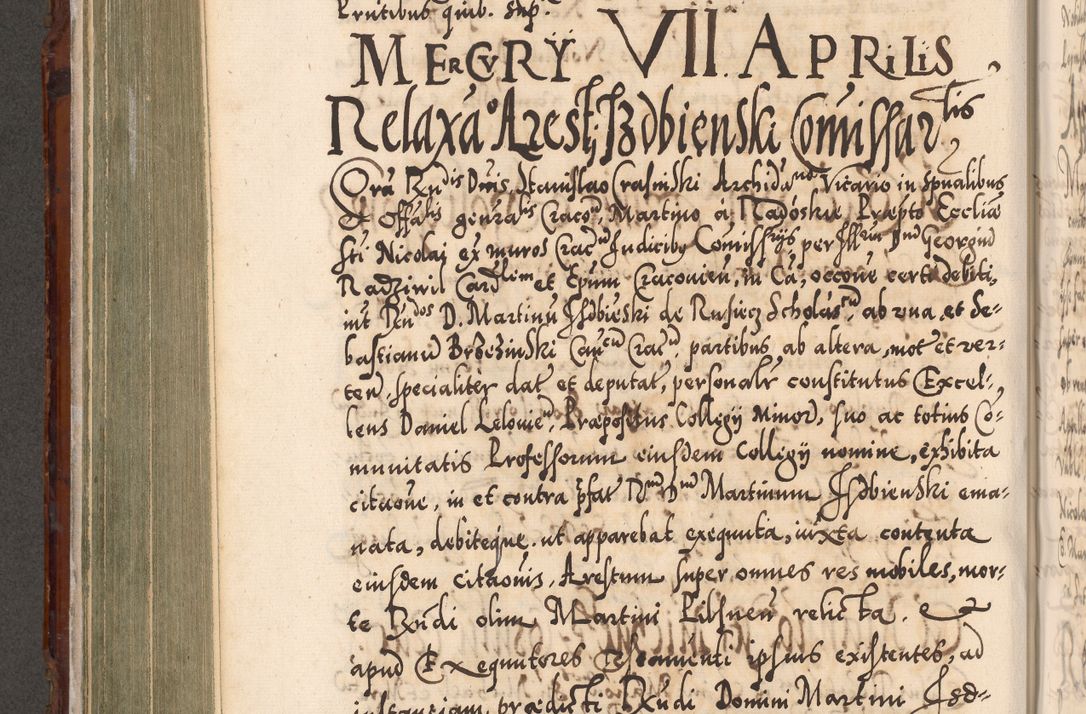 Fructibus quib. sup.
MERCVRŸ VII. APRILIS
Relaxao Arestj Izdbienski Comissartis
Cora Rndis Dnis Stanislao Crasinski Archidano Vicario in spualibus
et Offalis genralis Cracon, Martino à Radoskie Præpto Eccliæ
Sti Nicolai ex muros Cracen Judicibus Comissrijs per Illrm Dnū Georgiū
Radziwil Cardlem et Epum Cracovien, in Cā, occone certi debiti,
int Rndos D. Martinū Isdbieński de Rusiecz Scholastcū, ab una, et Se-
bastianū Brzezinski Canctū Cracn, partibus ab altera, mot et ver-
ten, specialiter dat et deputat, personalr constitutus Excel-
lens Daniel Lelovien, Præpositus Collegij Minor, suo ac totius Co-
munitatis Professorum eiusdem Collegij nomine, exhibita
citaone, in et contra pfat Rnū Dnū Martinum Isdbienski ema-
nata, debiteque ut apparebat exequuta, iuxta contenta
eiusdem citaonis, Arestum super omnes res mobiles, mor-
te Rndi olim Martini Libsnen relicta. et
apud Exequutores Testamenti ipsius existentes, ad
instantiam prædicti Rndi Domini Martini Isd-